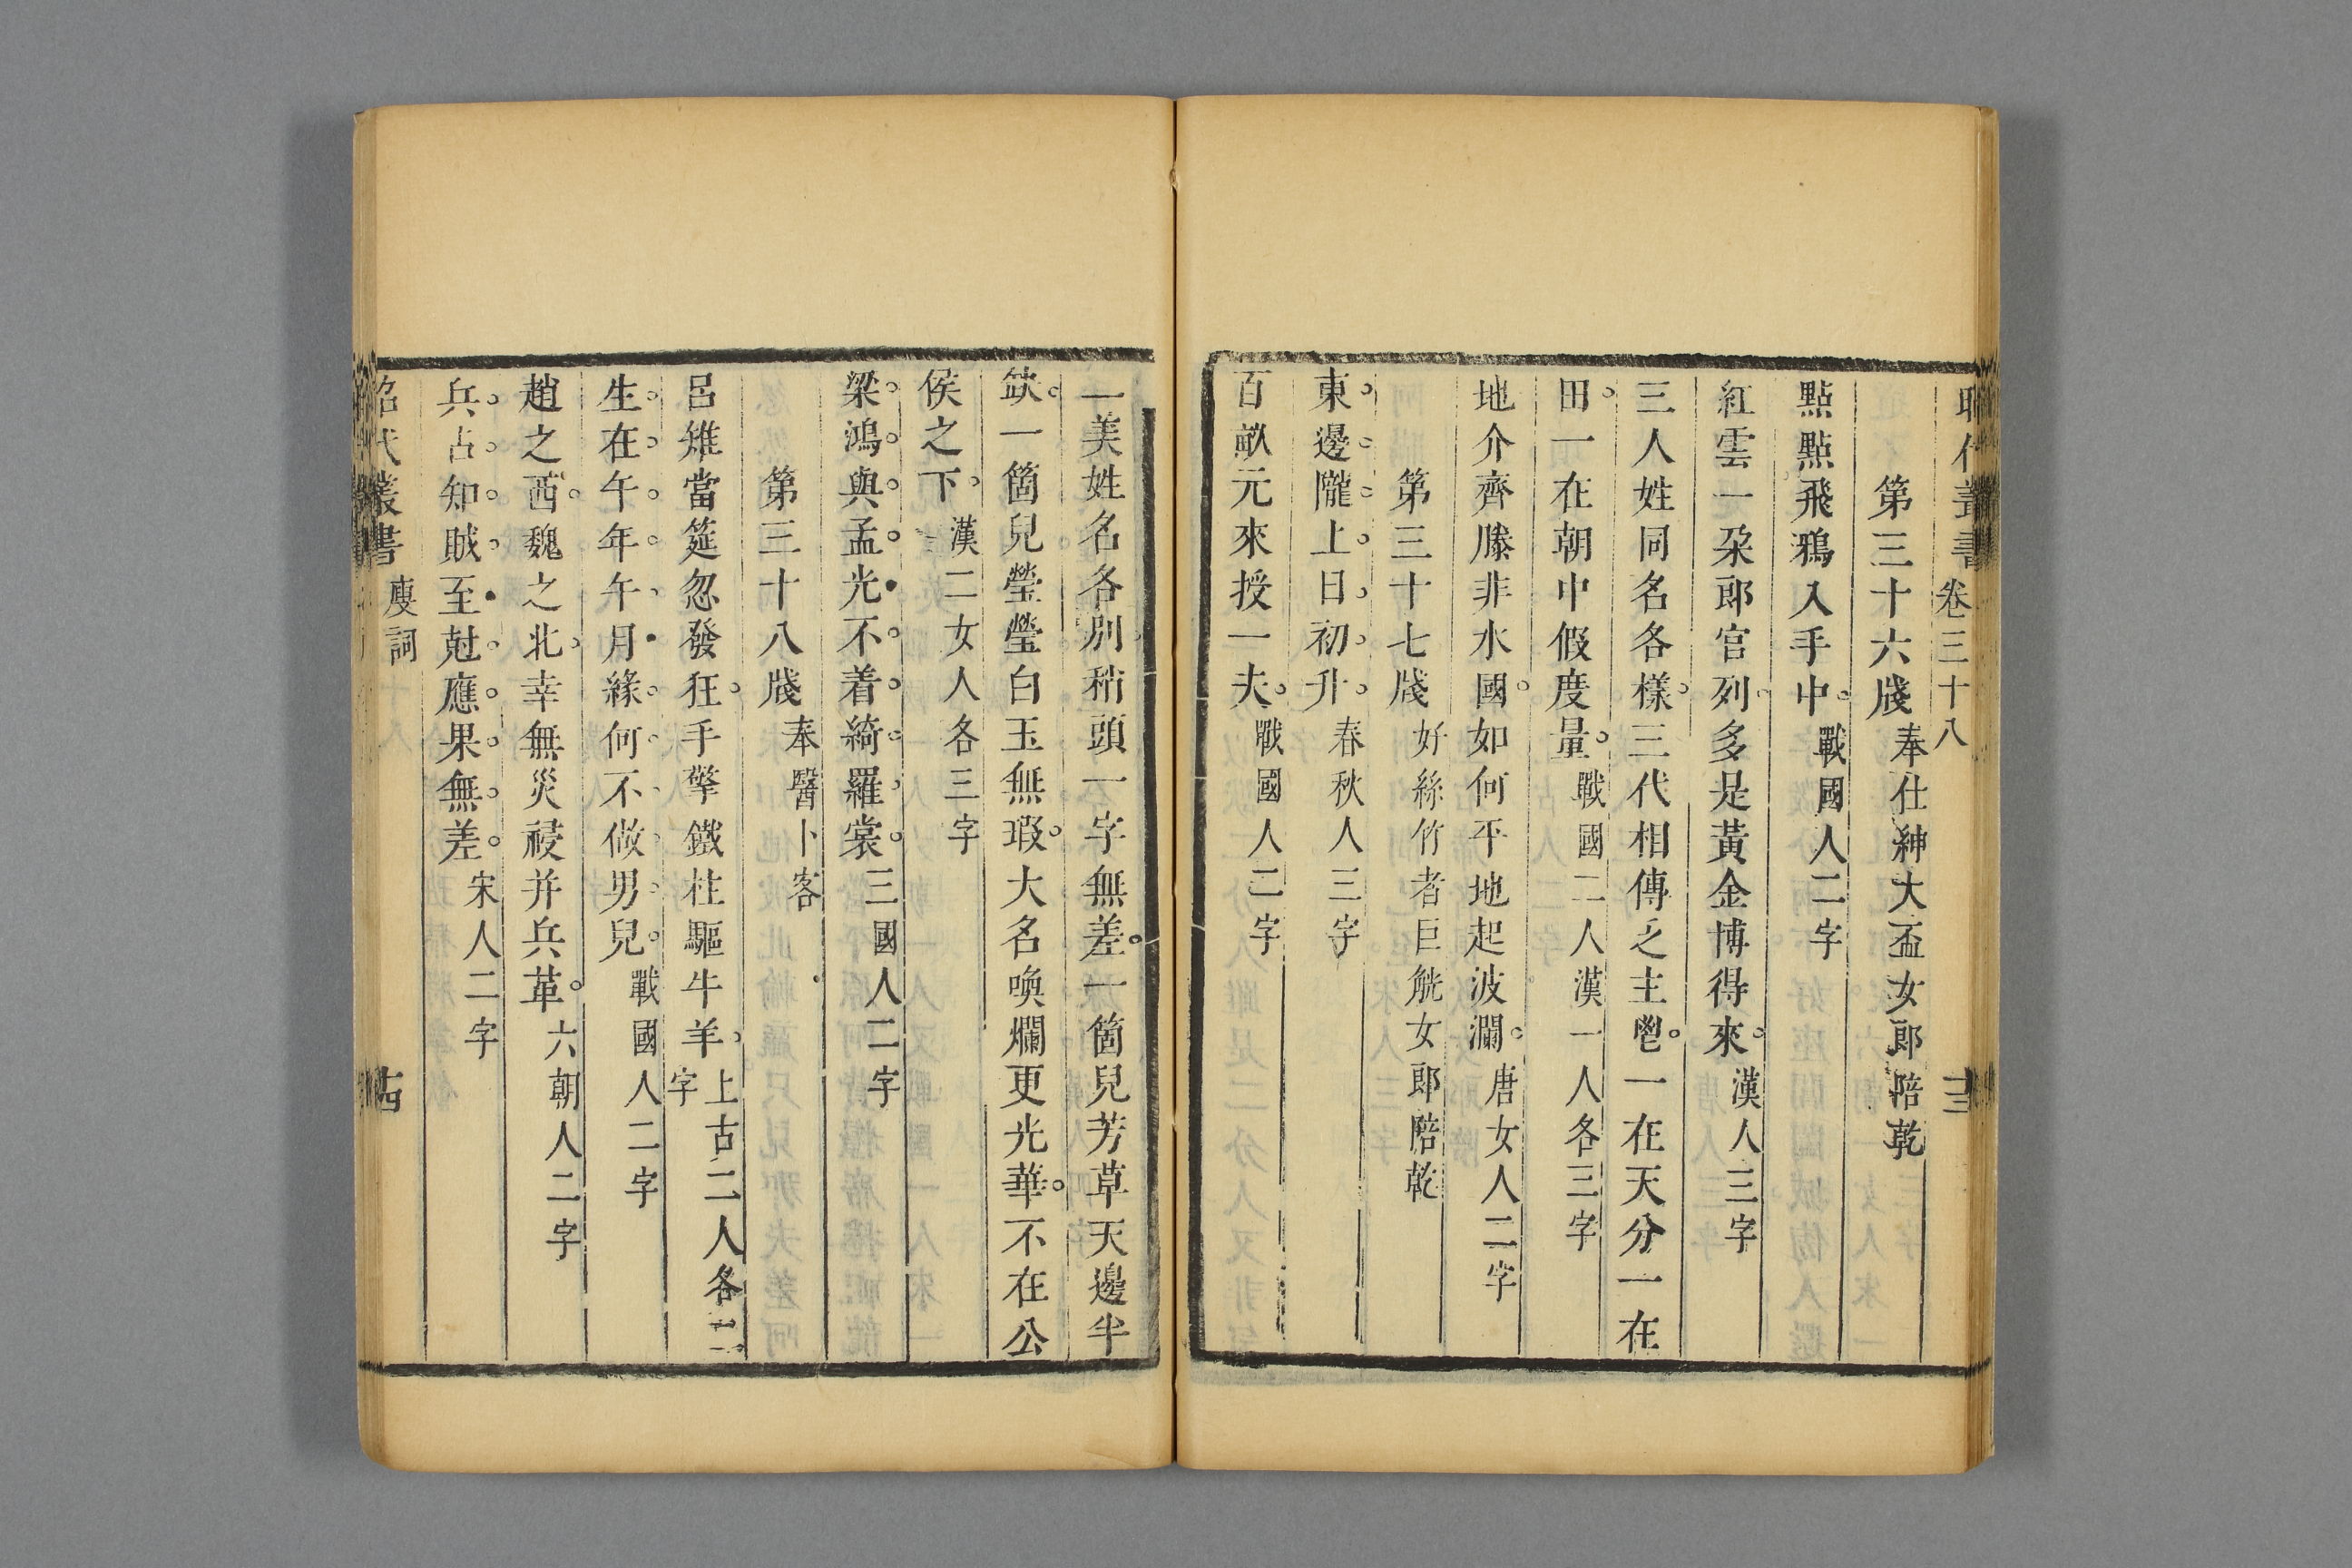 昭代叢書 卷三十八 十三
第三十六牋 奉仕紳大盃女郎陪乾
點點飛鴉入手中 戰國人二字
紅雲一朶郎官列多是黃金博得來 漢人三字
三人姓同名各樣三代相傳之主鬯一在天分一在
田一在朝中假度量 戰國二人漢一人各三字
地介齊滕非水國如何平地起波瀾 唐女人二字
第三十七牋 好絲竹者巨觥女郎陪乾
東邊隴上日初升 春秋人三字
百畝元來授一夫 戰國人二字
二美姓名各別稍頭一字無差一箇兒芳草天邊半
缺一箇兒瑩瑩白玉無瑕大名喚爛更光華不在公
侯之下 漢二女人各三字
梁鴻與孟光不着綺羅裳 三國人二字
第三十八牋 奉醫卜客
呂雉當筵忽發狂手擎鐵柱驅牛羊 上古二人各二字
生在午年午月緣何不做男兒 戰國人二字
趙之西魏之北幸無災祲并兵革 六朝人二字
兵占知賊至尅應果無差 宋人二字
昭代叢書 廋詞 十四